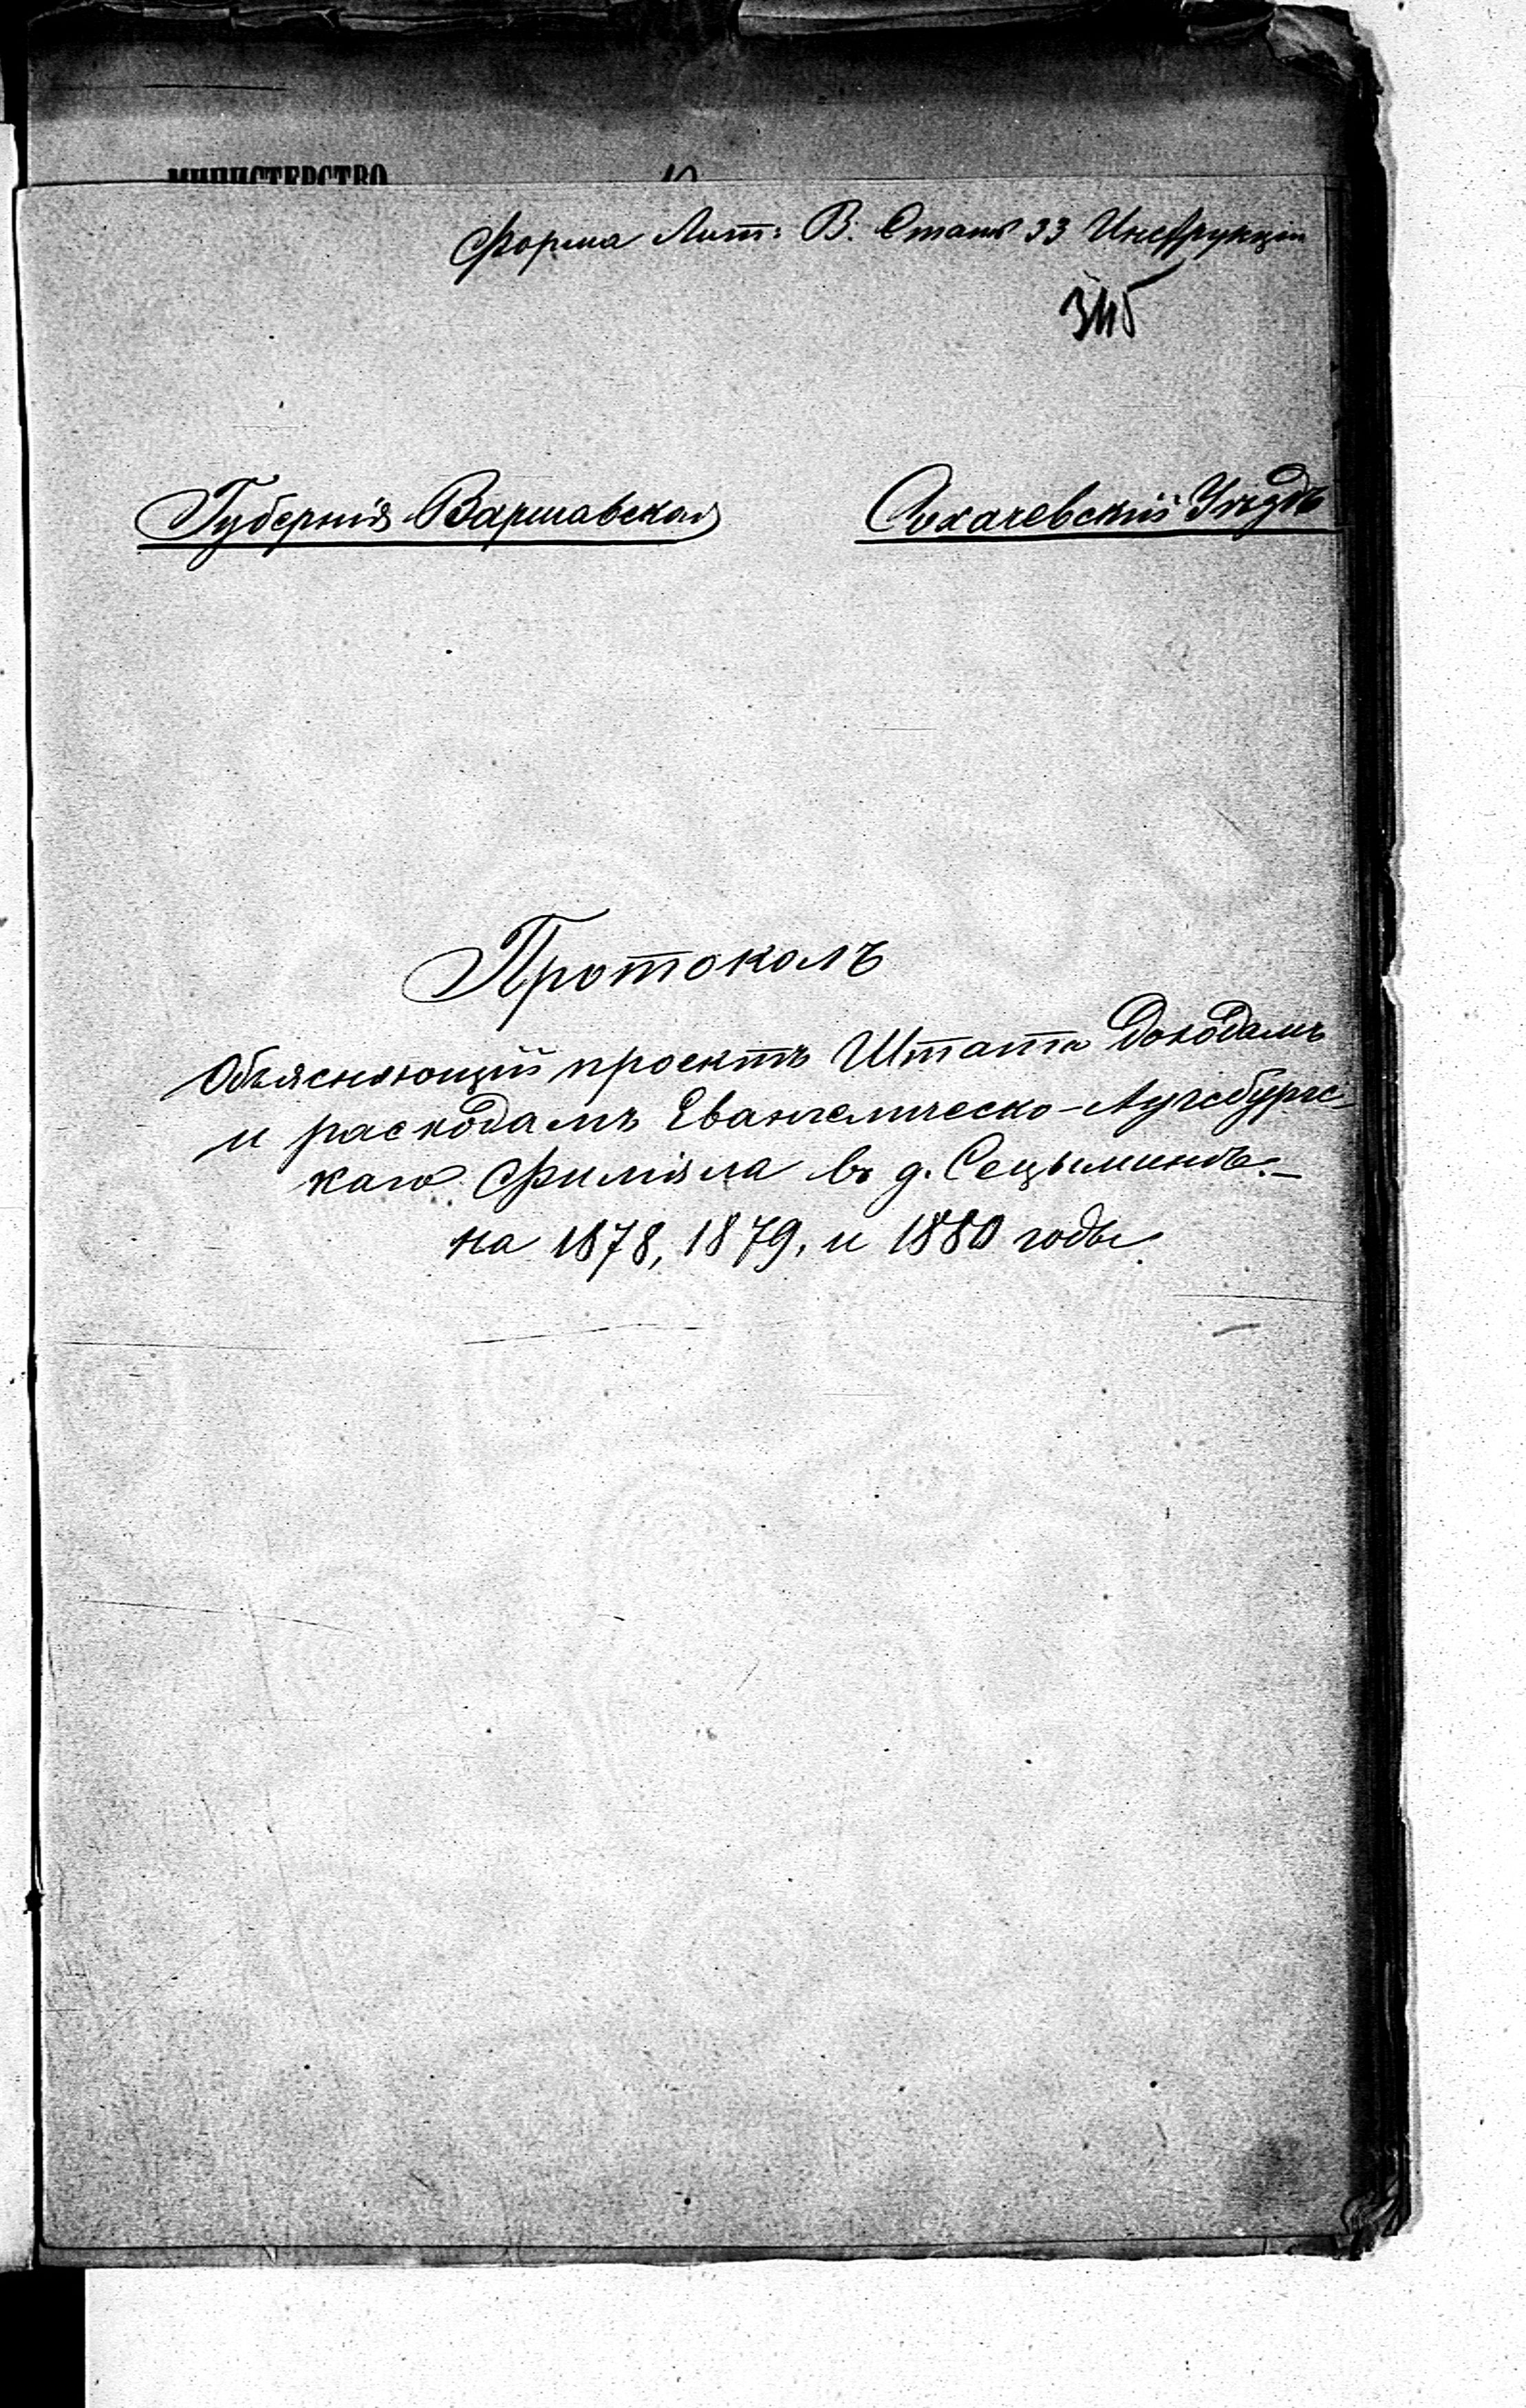 МИНИСТЕРСТВО
Форма Лит: В. Статьи 33 Инструкціи
345
Губернія Варшавская Сохачевскій Уѣздъ
Протоколъ
Объясняющій проектъ Штата доходамъ
и расходамъ Евангелическо-Аугсбургс-
каго Филіяла въ д. Сецыминѣ.-
на 1878, 1879, и 1880 годы.